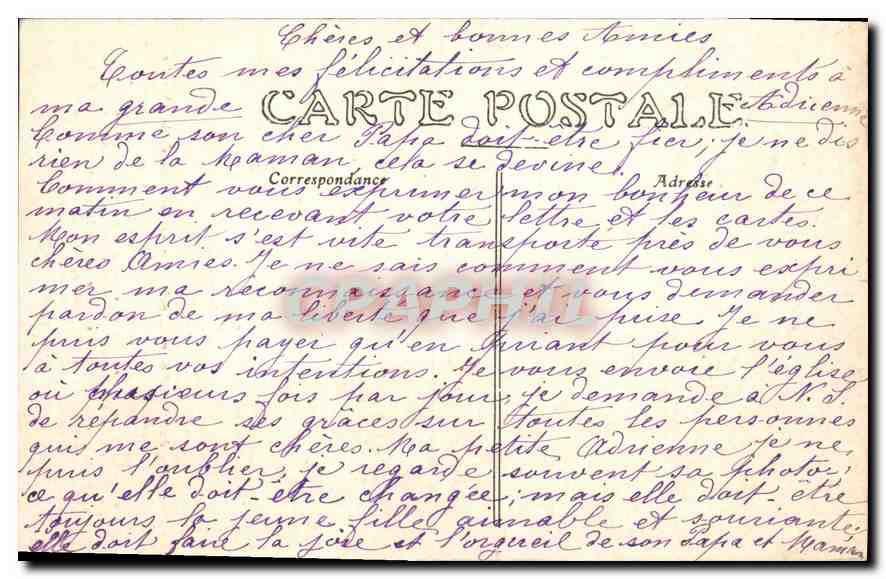 Chères et bonnes Amies
Toutes mes félicitations et compliments à
ma grande Adrienne
CARTE POSTALE
Comme son cher Papa doit-être fier; je ne dis
rien de la Maman cela se devine.
Correspondance Adresse
Comment vous exprimer mon bonheur de ce
matin en recevant votre lettre et les cartes.
Mon esprit s'est vite transporté près de vous
chères Amies. Je ne sais comment vous expri
mer ma reconnaissance et vous demander
CPAPHIL
pardon de ma liberté que j'ai prise. Je ne
puis vous payer qu'en priant pour vous
à toutes vos intentions. Je vous envoie l'église
où plusieurs fois par jour, je demande à N. S.
de répandre ses grâces sur toutes les personnes
qui me sont chères. Ma petite Adrienne je ne
puis l'oublier, je regarde souvent sa photo;
ce qu'elle doit-être changée; mais elle doit-être
toujours la jeune fille aimable et souriante.
elle doit faire la joie et l'orgueil de son Papa et Maman